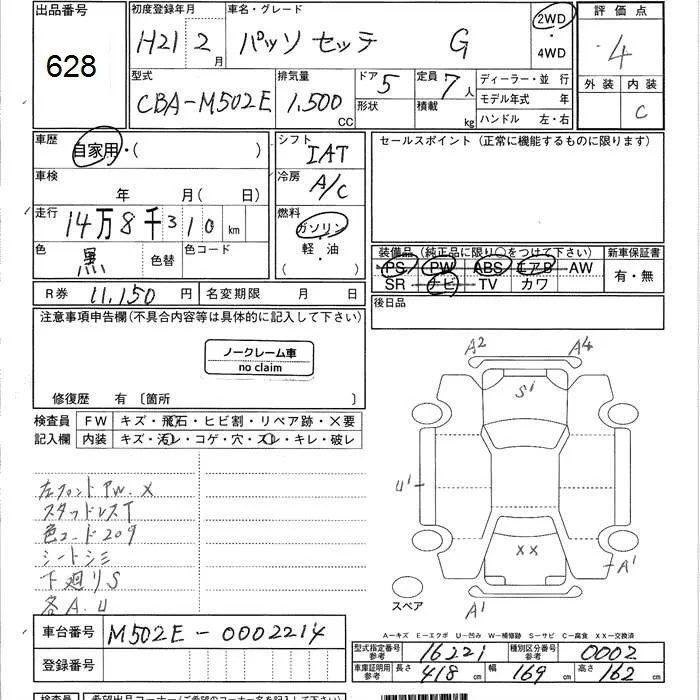 出品番号 628
初度登録年月 H21 2月
車名・グレード パッソ セッテ G
2WD ・ 4WD
評価点 4
外装 内装 C
型式 CBA-M502E
排気量 1,500 CC
ドア 5 形状
定員 7人 積載 kg
ディーラー・並 行
モデル年式 年
ハンドル 左・右
車歴 自家用・( )
シフト IAT
セールスポイント (正常に機能するものに限ります)
車検 年 月( 日)
冷房 A/C
走行 14万8千310 km
燃料 ガソリン 軽・油 ( )
色 黒 色替 色コード
装備品 (純正品に限り○をつけて下さい) 新車保証書
PS PW ABS エアB AW 有・無
SR ナビ TV カワ
R券 11,150 円 名変期限 月 日
後日品
注意事項申告欄(不具合内容等は具体的に記入して下さい)
ノークレーム車
no claim
修復歴 有 〔箇所 〕
検査員 FW キズ・飛石・ヒビ割・リペア跡・×要
記入欄 内装 キズ・汚レ・コゲ・穴・スレ・キレ・破レ
A2 A4
S1
U1
左フロントPW.×
スタッドレスT
色コード209
シートシミ
下廻りS
各A.U
XX
A1
A1
スペア
A-キズ E-エクボ U-凹み W-補修跡 S-サビ C-腐食 XX-交換済
車台番号 M502E-0002214
登録番号
型式指定番号 参考 16221 種別区分番号 参考 0002
車庫証明用 参考 長さ 418 cm 幅 169 cm 高さ 162 cm
検査員 希望出品コーナー(ご希望のコーナー名